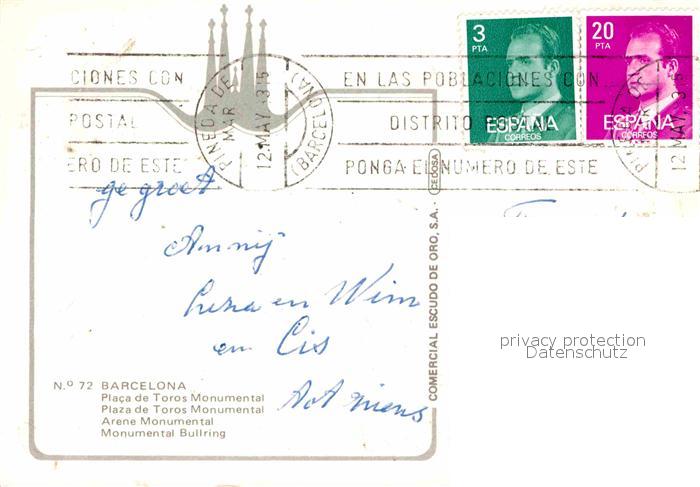 3 PTA
20 PTA
ESPAÑA
CORREOS
ESPAÑA
CORREOS
CIONES CON
POSTAL
ERO DE ESTE
PINEDA DE MAR
12 MAY
(BARCELONA)
EN LAS POBLACIONES CON
DISTRITO
PONGA EL NUMERO DE ESTE
12 MAY
ge greet
Annij
en Wim
en Cis
COMERCIAL ESCUDO DE ORO, S.A. - CEDOSA
privacy protection
Datenschutz
N.º 72 BARCELONA
Plaça de Toros Monumental
Plaza de Toros Monumental
Arene Monumental
Monumental Bullring